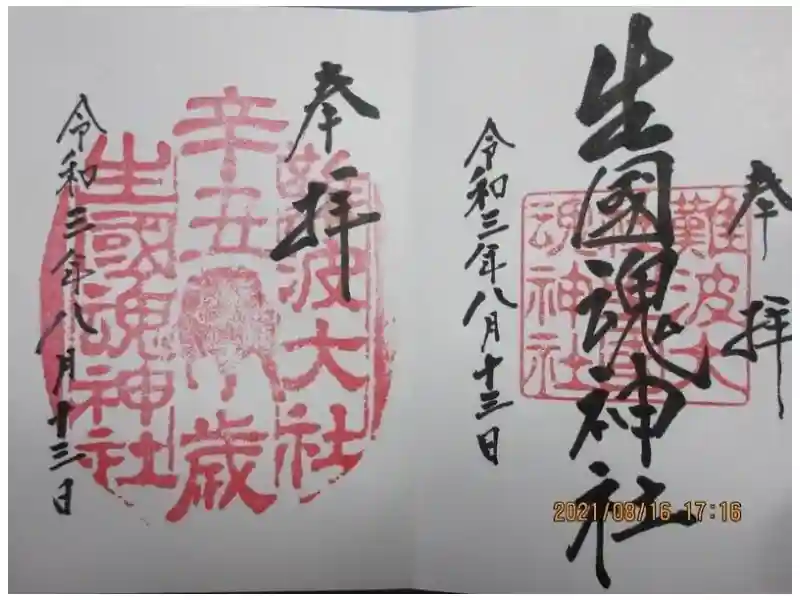 奉拝
生國魂神社
難波大
社生國
魂神社
令和三年八月十三日
奉拝
難波大社
辛丑歳
生國魂神社
令和三年八月十三日
2021/08/16 17:16